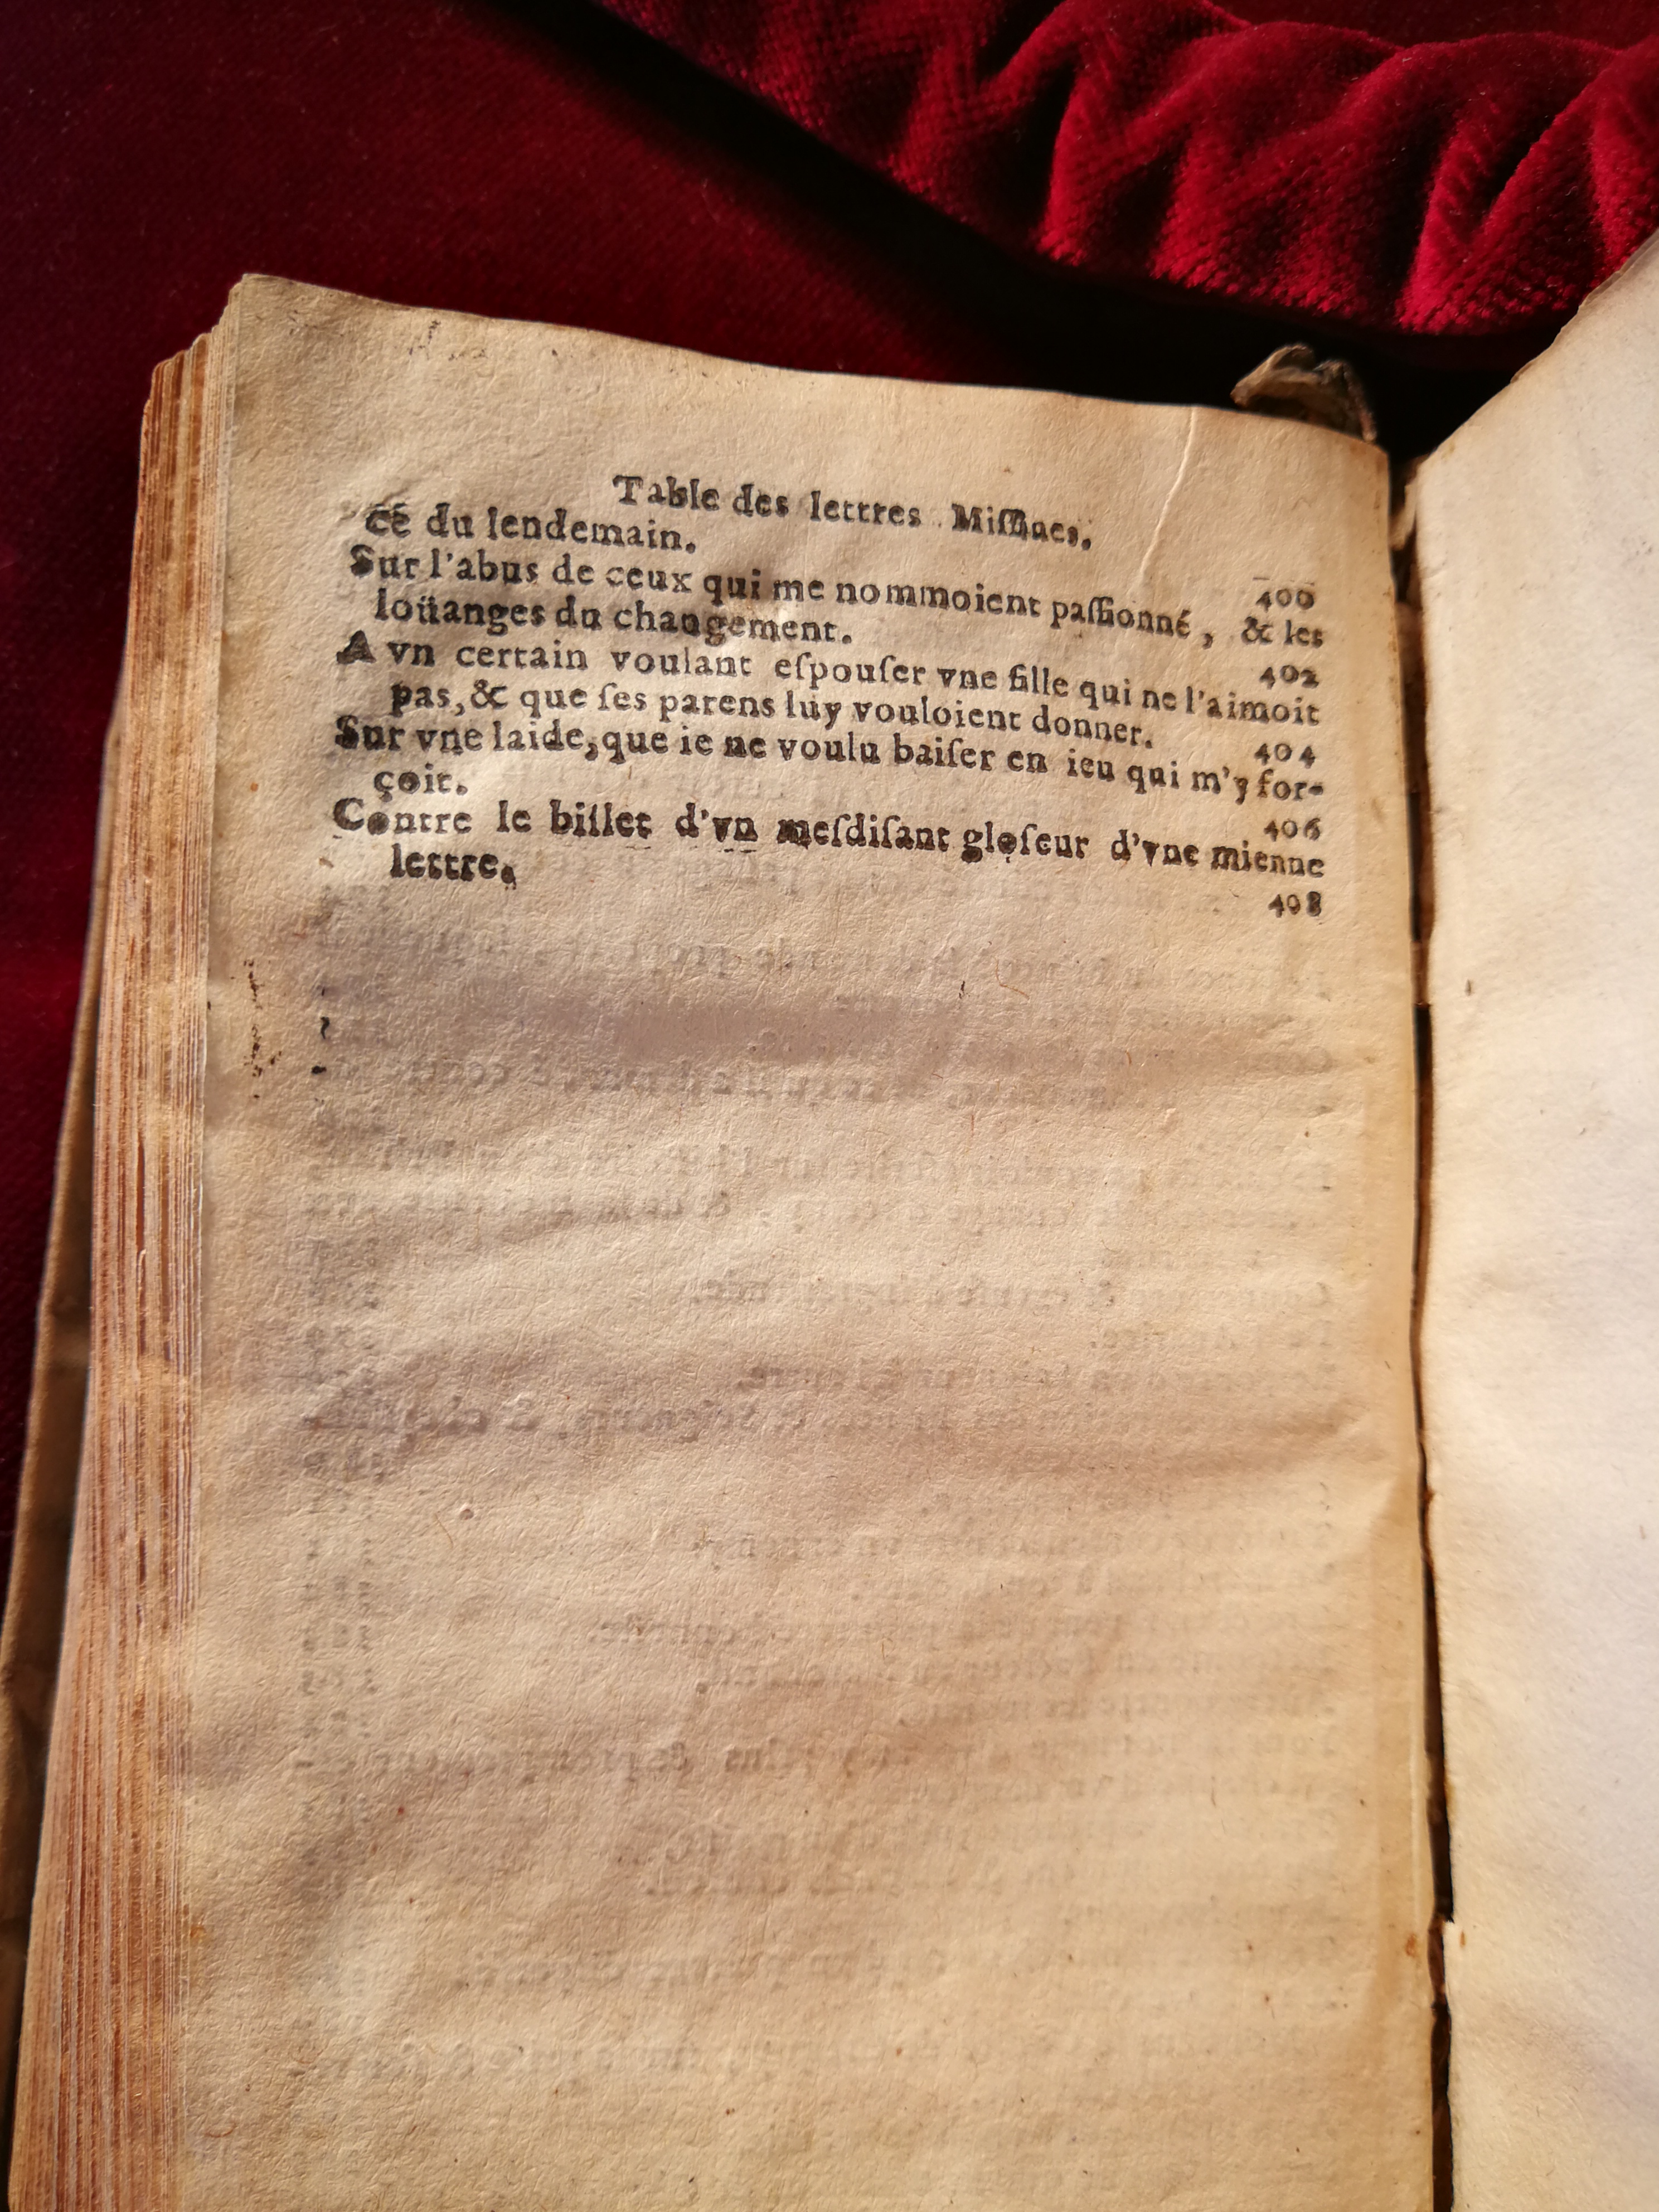 Table des lettres Miſſiues.
cé du lendemain. 400
Sur l'abus de ceux qui me nommoient paſſionné, & les
loüanges du changement. 402
A vn certain voulant eſpouſer vne fille qui ne l'aimoit
pas, & que ſes parens luy vouloient donner. 404
Sur vne laide, que ie ne voulu baiſer en ieu qui m'y for-
çoit. 406
Contre le billet d'vn meſdiſant gloſeur d'vne mienne
lettre. 408